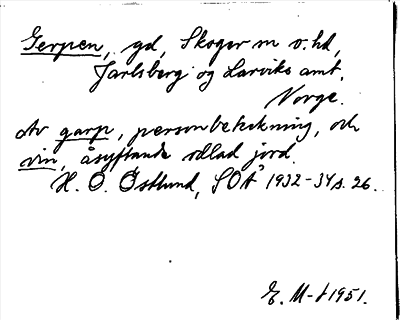 Gerpen, gd, Skoger sn o. hd,
Jarlsberg og Larviks amt.
Norge.
Av garp, personbeteckning, och
vin, åsyftande odlad jord.
H. O. Östlund, SOÅ 1932-34 s. 26.
E. M-f 1951.